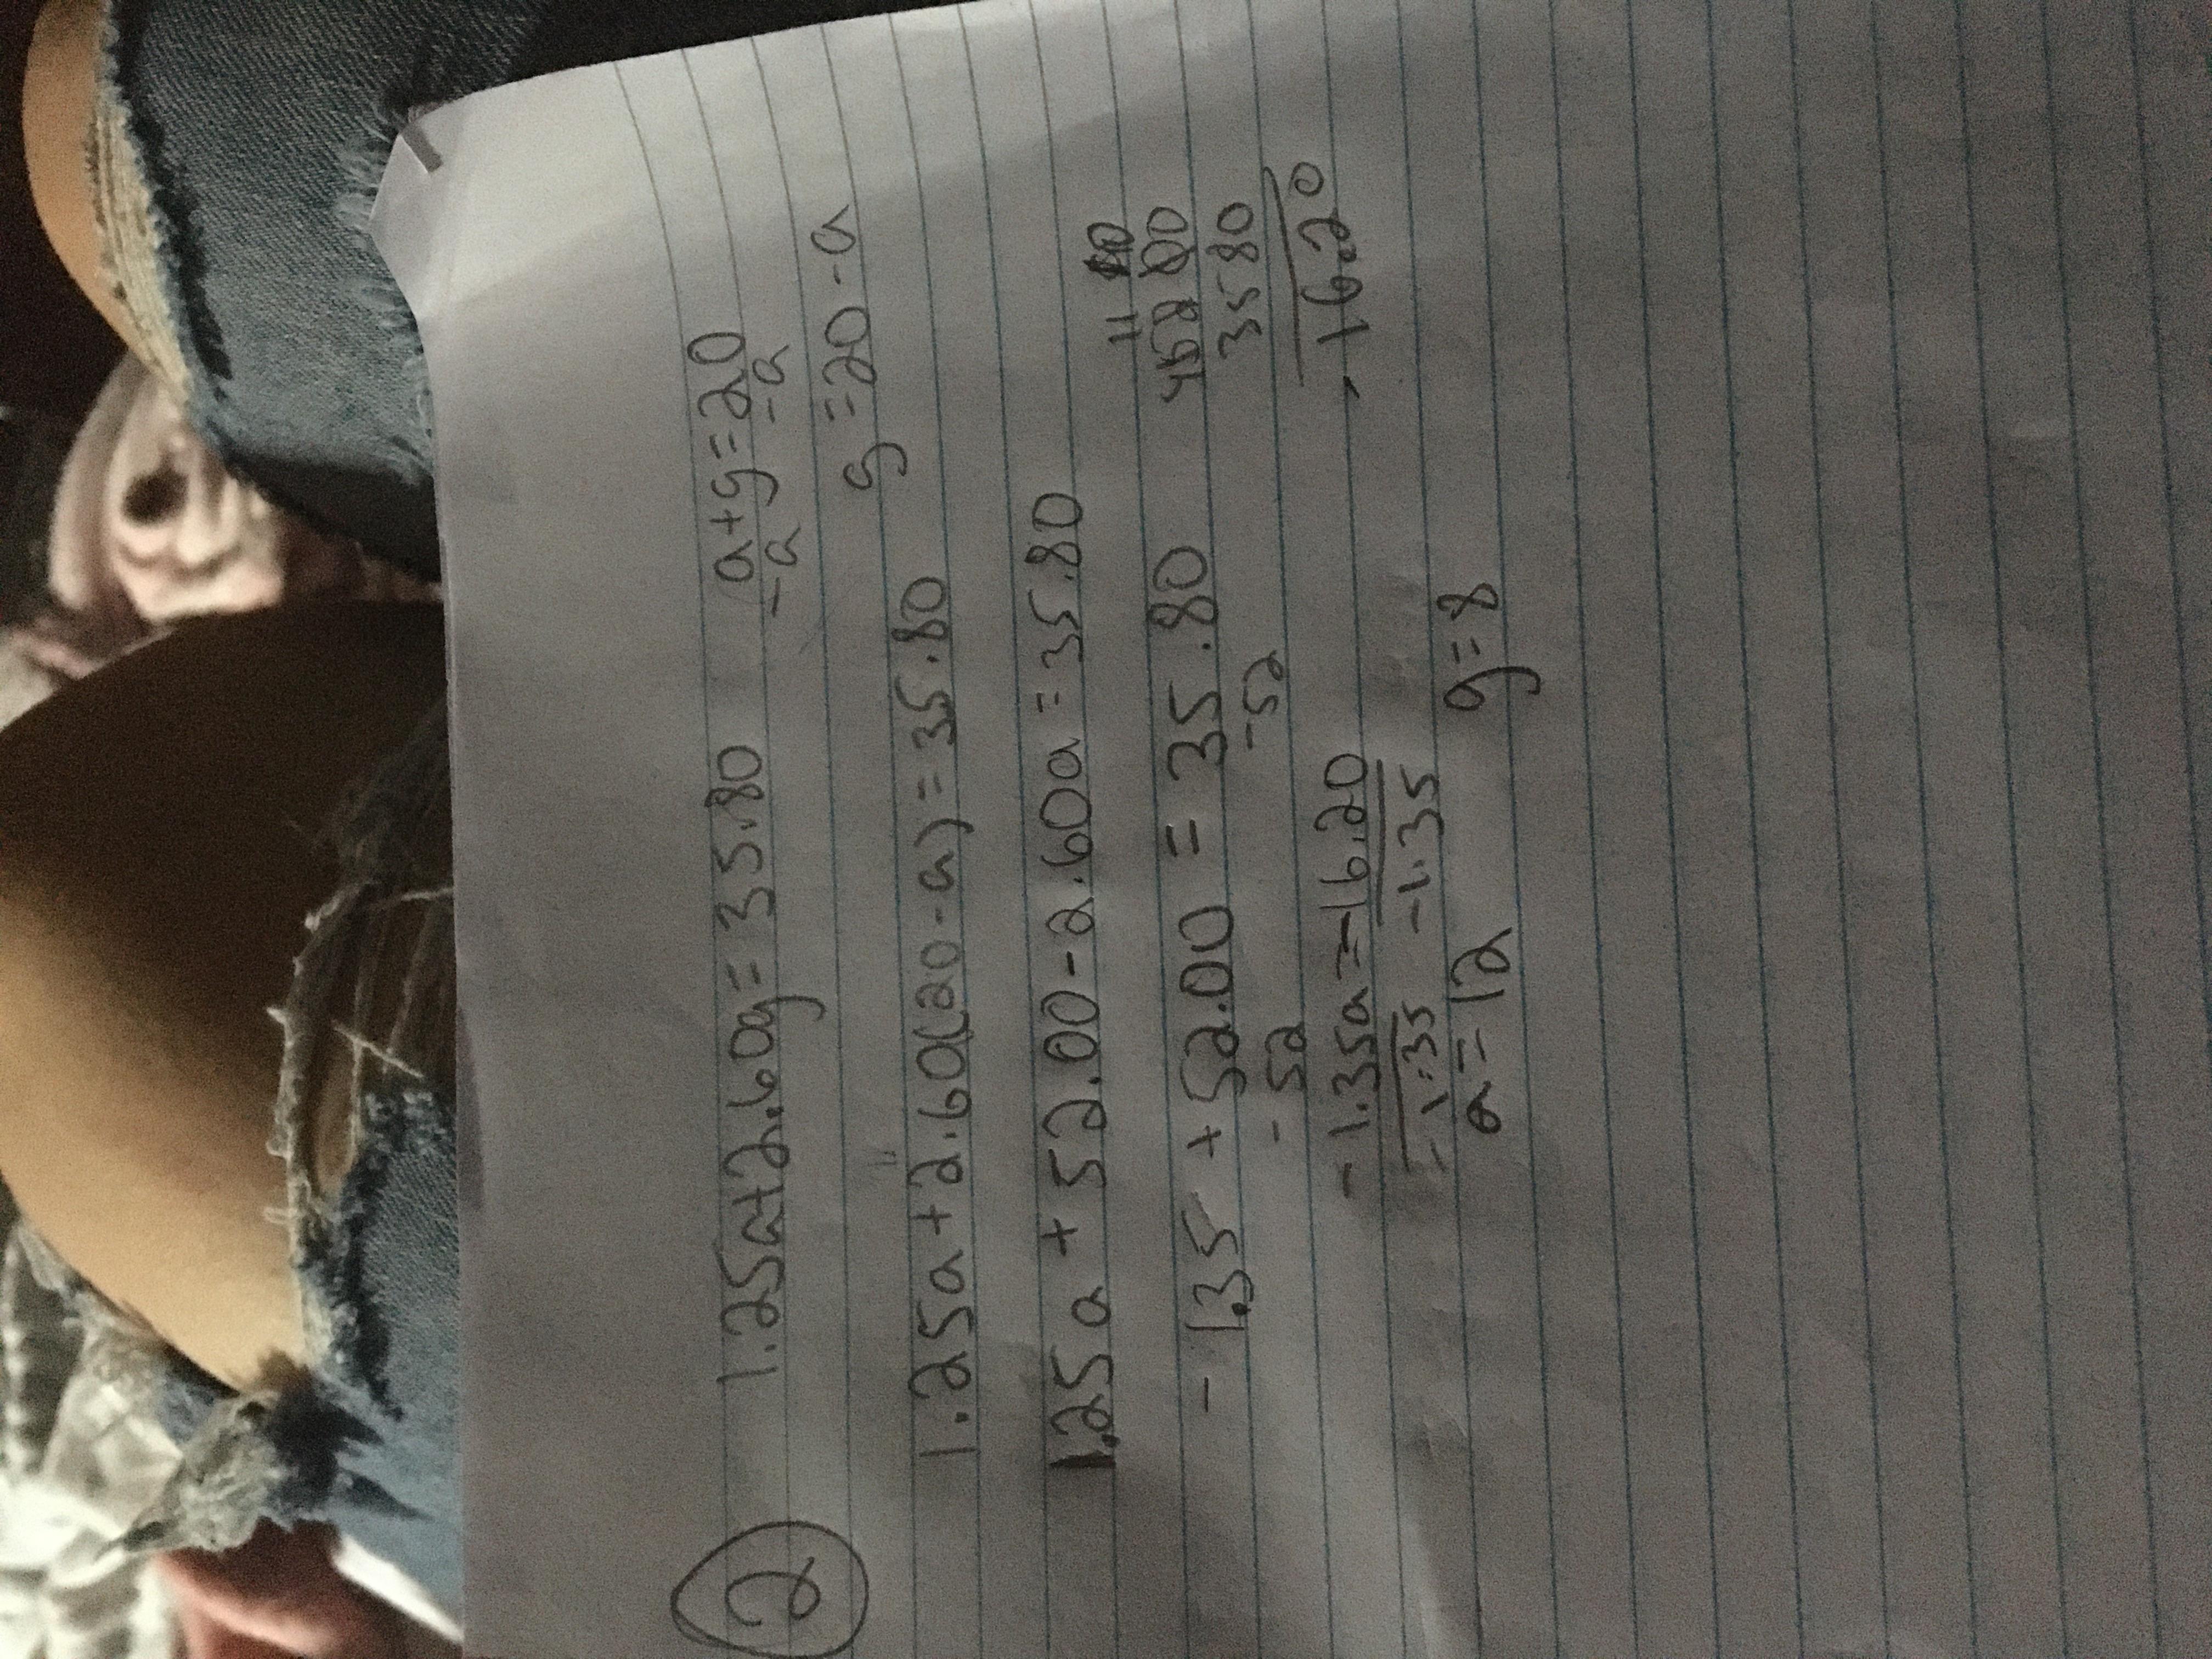 2
1.25a+2.60g=35.80
a+g=20
-a -a
g=20-a
1.25a+2.60(20-a)=35.80
1.25a+52.00-2.60a=35.80
-1.35+52.00=35.80
-52 -52
-1.35a=-16.20
-1.35 -1.35
a=12 g=8
11
35 80
-16.20